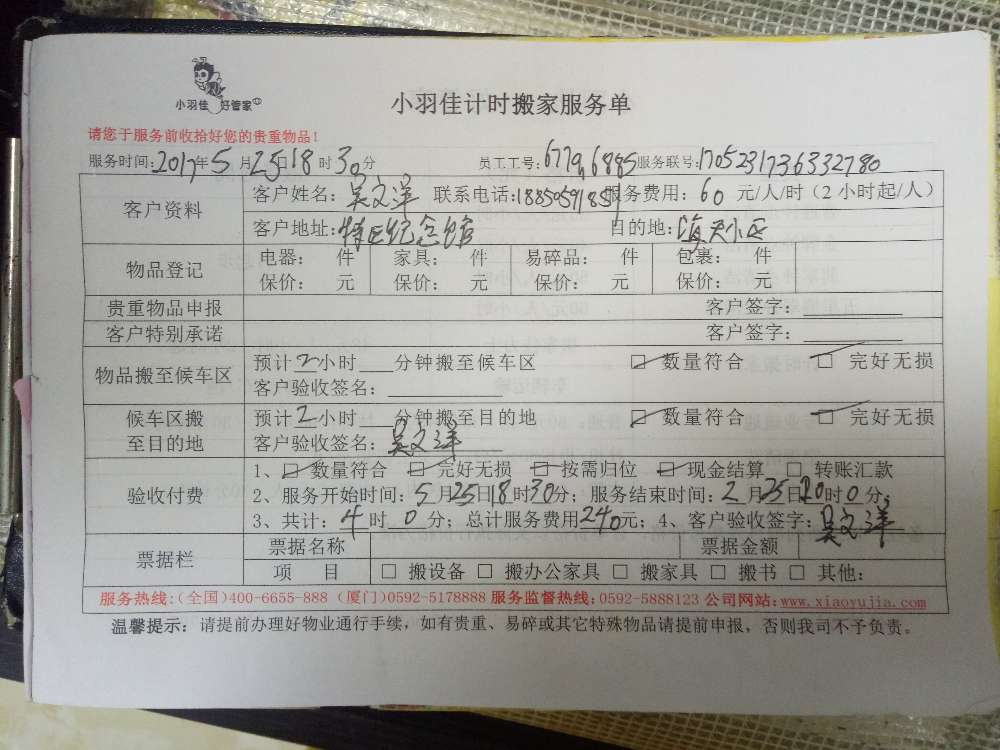 小羽佳 好管家
小羽佳计时搬家服务单
请您于服务前收拾好您的贵重物品！
服务时间:2017年5月25日18时30分 员工工号: 服务联号:1705231736332780
客户资料 客户姓名:吴文洋 联系电话: 服务费用:60元/人/时(2小时起/人)
客户地址:特区纪念馆 目的地:海天小区
物品登记 电器: 件 家具: 件 易碎品: 件 包裹: 件
保价: 元 保价: 元 保价: 元 保价: 元
贵重物品申报 客户签字:
客户特别承诺 客户签字:
物品搬至候车区 预计2小时 分钟搬至候车区 ☑ 数量符合 ☑ 完好无损
客户验收签名:
候车区搬至目的地 预计2小时 分钟搬至目的地 ☑ 数量符合 ☑ 完好无损
客户验收签名:吴文洋
验收付费 1、☑ 数量符合 ☑ 完好无损 ☑ 按需归位 ☑ 现金结算 □ 转账汇款
2、服务开始时间:5月25日18时30分;服务结束时间:2月25日20时0分;
3、共计:4时0分;总计服务费用240元;4、客户验收签字:吴文洋
票据栏 票据名称 票据金额
项 目 □ 搬设备 □ 搬办公家具 □ 搬家具 □ 搬书 □ 其他:
服务热线:(全国)400-6655-888 (厦门)0592-5178888 服务监督热线:0592-5888123 公司网站:www.xiaoyujia.com
温馨提示: 请提前办理好物业通行手续，如有贵重、易碎或其它特殊物品请提前申报，否则我司不予负责。